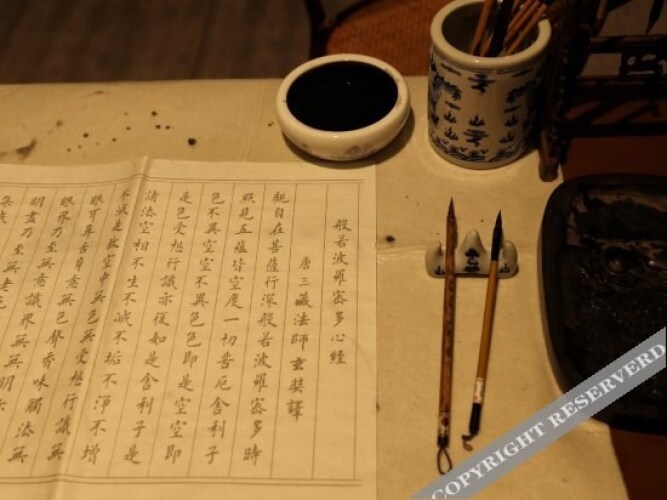 般若波羅密多心經
唐三藏法師玄奘譯
觀自在菩薩行深般若波羅密多時
照見五蘊皆空度一切苦厄舍利子
色不異空空不異色色即是空空即
是色受想行識亦復如是舍利子是
諸法空相不生不滅不垢不淨不增
不減是故空中無色無受想行識無
眼耳鼻舌身意無色聲香味觸法無
眼界乃至無意識界無無明
明盡乃至無老
COPYRIGHT RESERVERD